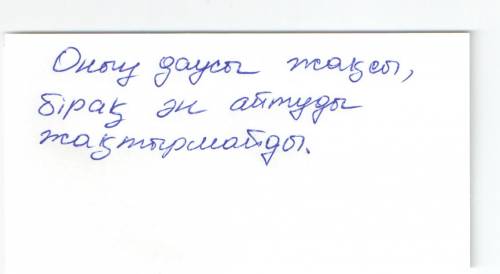 Оның даусы жақсы,
бірақ ән айтуды
жақтырмайды.